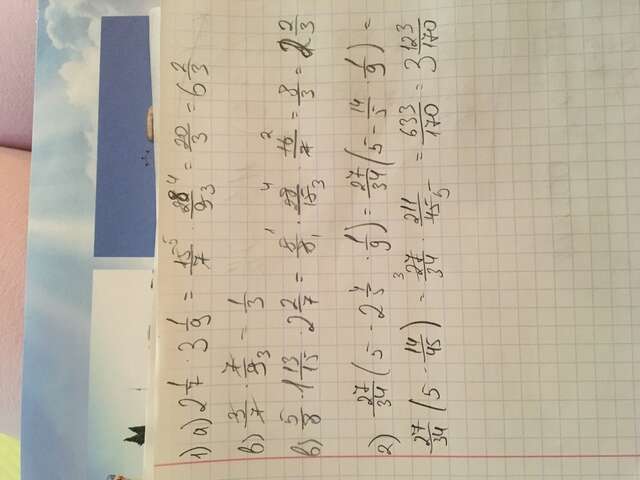 1) а) 2 1/7 · 3 1/9 = 15/7 5 · 28/9 4 3 = 20/3 = 6 2/3
в) 3/7 · 7/9 3 = 1/3
в) 5/8 · 1 13/15 · 2 2/7 = 8/8 1 1 · 28/15 4 3 · 16/7 2 = 8/3 = 2 2/3
2) 27/34 ( 5 - 2 4/5 · 1/9 ) = 27/34 ( 5 - 14/5 · 1/9 ) =
27/34 ( 5 - 14/45 ) = 3 27/34 · 211/45 5 = 633/170 = 3 123/170